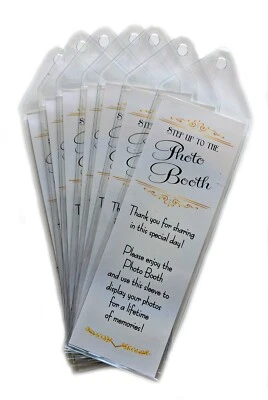 STEP UP TO THE
Photo
Booth
Thank you for sharing
in this special day!
Please enjoy the
Photo Booth
and use this sleeve to
display your photos
for a lifetime
of memories!